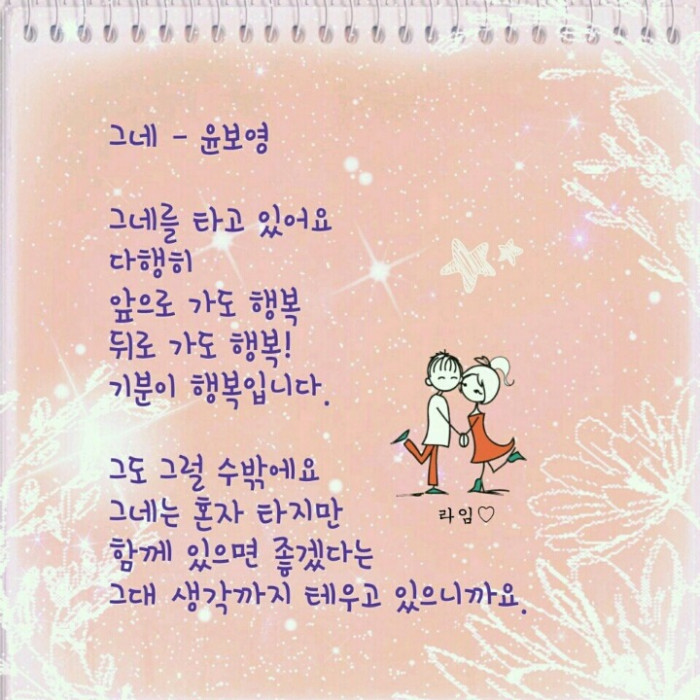 그네 - 윤보영
그네를 타고 있어요
다행히
앞으로 가도 행복
뒤로 가도 행복!
기분이 행복입니다.
그도 그럴 수밖에요
그네는 혼자 타지만
함께 있으면 좋겠다는
그대 생각까지 테우고 있으니까요.
라임♡